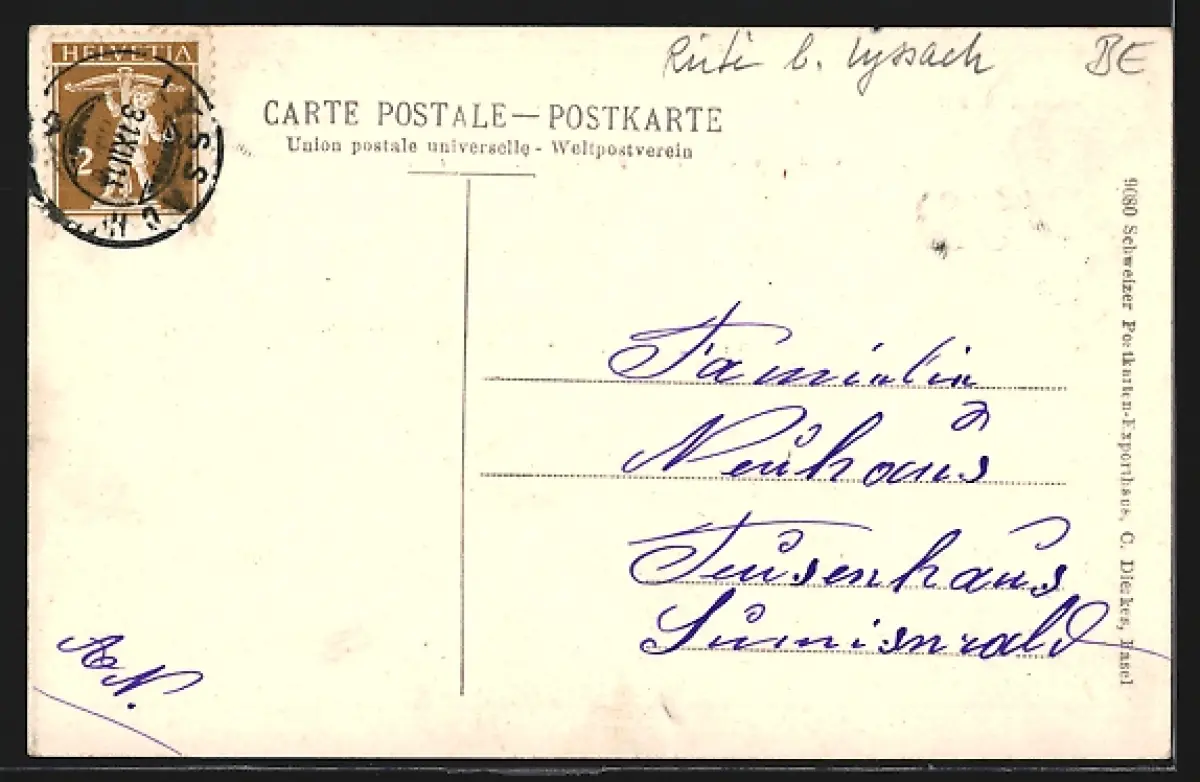 Rüti b. Lyssach BE
HELVETIA
2
LYSSACH
31.XII.
CARTE POSTALE—POSTKARTE
Union postale universelle - Weltpostverein
Familie
Neuhaus
haus
Sumiswald
A. N.
9080 Schweizer Postkarten-Exporthaus, C. Dierkes, Basel